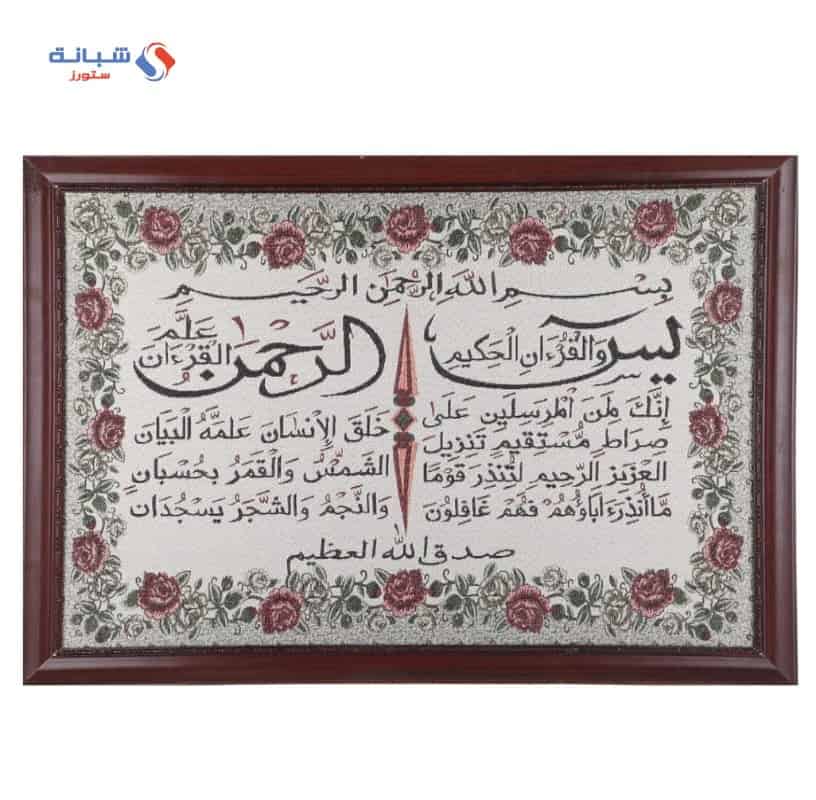 شبانة
ستورز
بِسْمِ اللَّهِ الرَّحْمَنِ الرَّحِيمِ
يس وَالْقُرْءَانِ الْحَكِيمِ
إِنَّكَ لَمِنَ الْمُرْسَلِينَ عَلَى
صِرَاطٍ مُّسْتَقِيمٍ تَنزِيلَ
الْعَزِيزِ الرَّحِيمِ لِتُنذِرَ قَوْمًا
مَّا أُنذِرَ ءَابَاؤُهُمْ فَهُمْ غَافِلُونَ
الرَّحْمَنُ عَلَّمَ الْقُرْءَانَ
خَلَقَ الْإِنْسَانَ عَلَّمَهُ الْبَيَانَ
الشَّمْسُ وَالْقَمَرُ بِحُسْبَانٍ
وَالنَّجْمُ وَالشَّجَرُ يَسْجُدَانِ
صدق الله العظيم